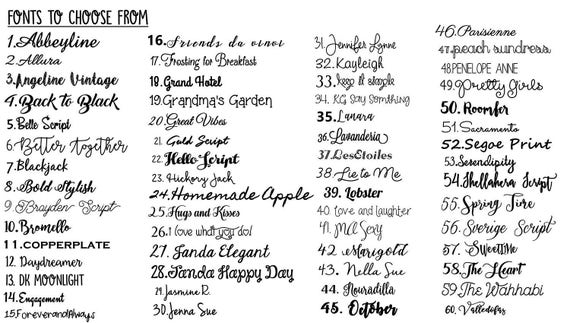 FONTS TO CHOOSE FROM
1. Abbeyline
2. Allura
3. Angeline Vintage
4. Back to Black
5. Belle Script
6. Better Together
7. Blackjack
8. Bold Stylish
9. Brayden Script
10. Bromello
11. COPPERPLATE
12. Daydreamer
13. DK MOONLIGHT
14. Engagement
15. ForeverandAlways
16. Friends du vinoi
17. Frosting for Breakfast
18. Grand Hotel
19. Grandma's Garden
20. Great Vibes
21. Guld Script
22. Hello Script
23. Hickory Jack
24. Homemade Apple
25. Hugs and Kisses
26. i love what you do!
27. Janda Elegant
28. Janda Happy Day
29. Jasmine R.
30. Jenna Sue
31. Jennifer Lynne
32. Kayleigh
33. keep it simple
34. KG Say Something
35. Lanara
36. Lavanderia
37. LesEtoiles
38. Lie to Me
39. Lobster
40. love and laughter
41. MA Sexy
42. Marigold
43. Nella Sue
44. Nouradilla
45. October
46. Parisienne
47. peach sundress
48. PENELOPE ANNE
49. Pretty Girls
50. Roomfer
51. Sacramento
52. Segoe Print
53. Serendipity
54. Shellahera Script
55. Spring Time
56. Sverige Script
57. SweetMe
58. The Heart
59. The Wahhabi
60. Valledofas